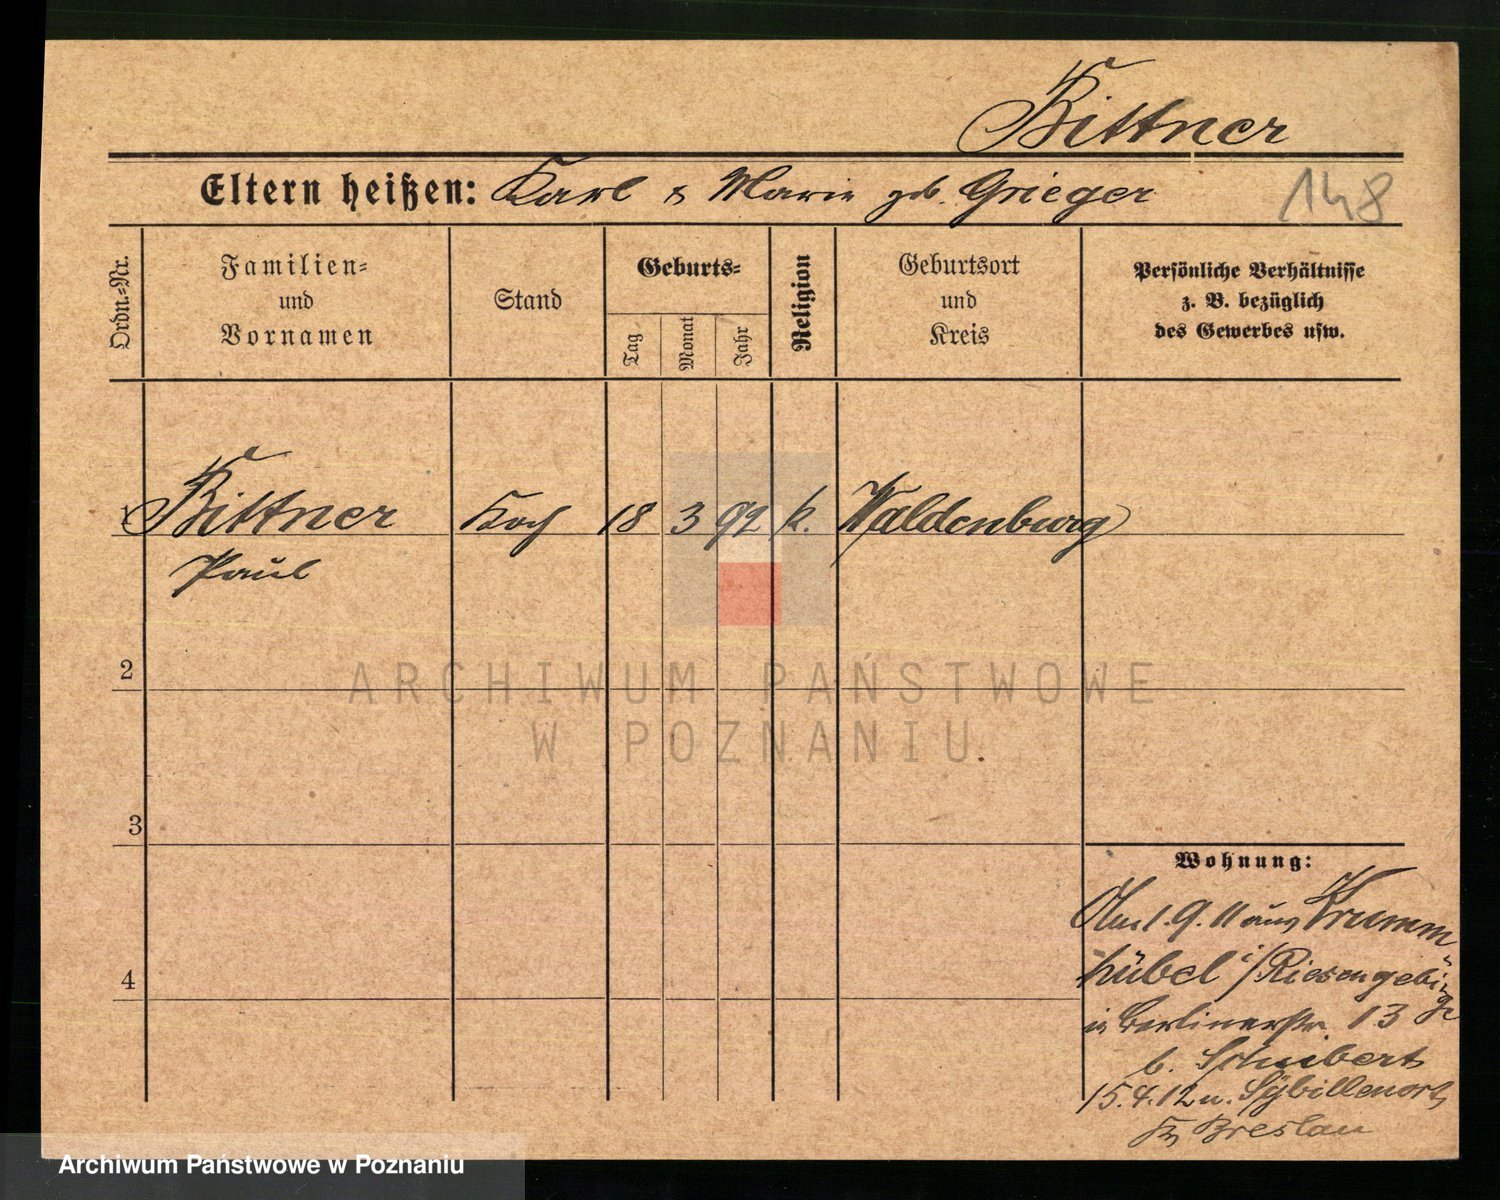 Bittner
Eltern heißen: Karl & Marie geb. Grieger
148
Ordn.-Nr.
Familien-
und
Vornamen
Stand
Geburts-
Tag
Monat
Jahr
Religion
Geburtsort
und
Kreis
Persönliche Verhältnisse
z. B. bezüglich
des Gewerbes usw.
1 Bittner Koch 18 3 92 k. Waldenburg
Paul
2
ARCHIWUM PAŃSTWOWE
W POZNANIU
3
4
Wohnung:
Am 1.9.11 aus Krumm
hübel i/Riesengebirge
in Berlinerstr. 13
b. Schubert
15.4.12 n. Sybillenort
Breslau
Archiwum Państwowe w Poznaniu